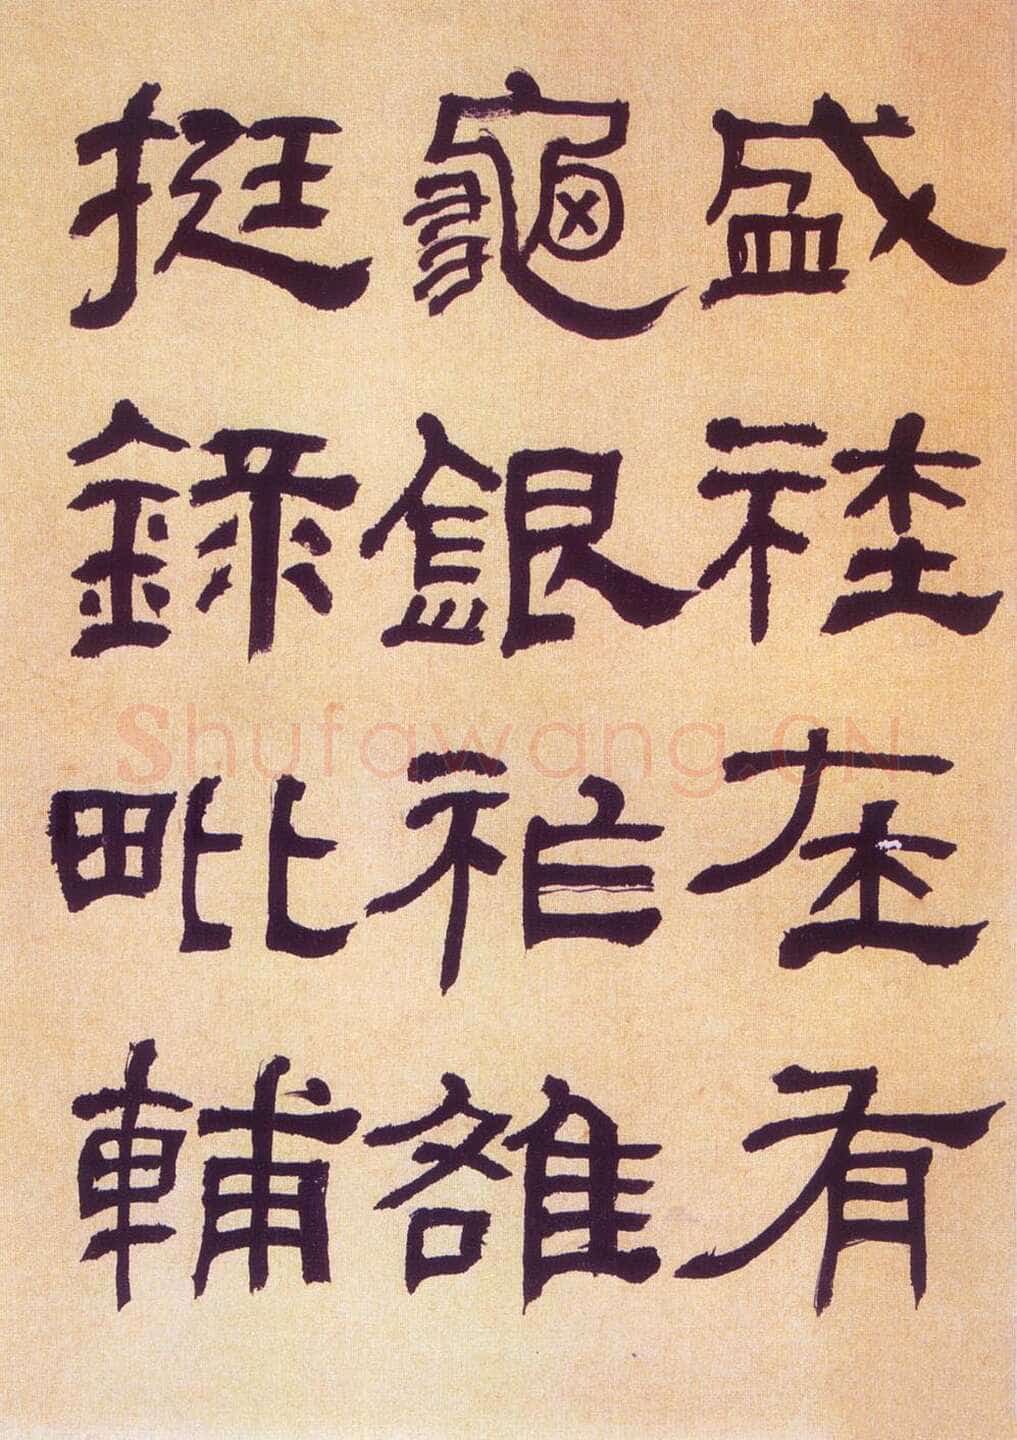 盛社在有
龜銀祚雒
挺錄毗輔
Shufawang.CN